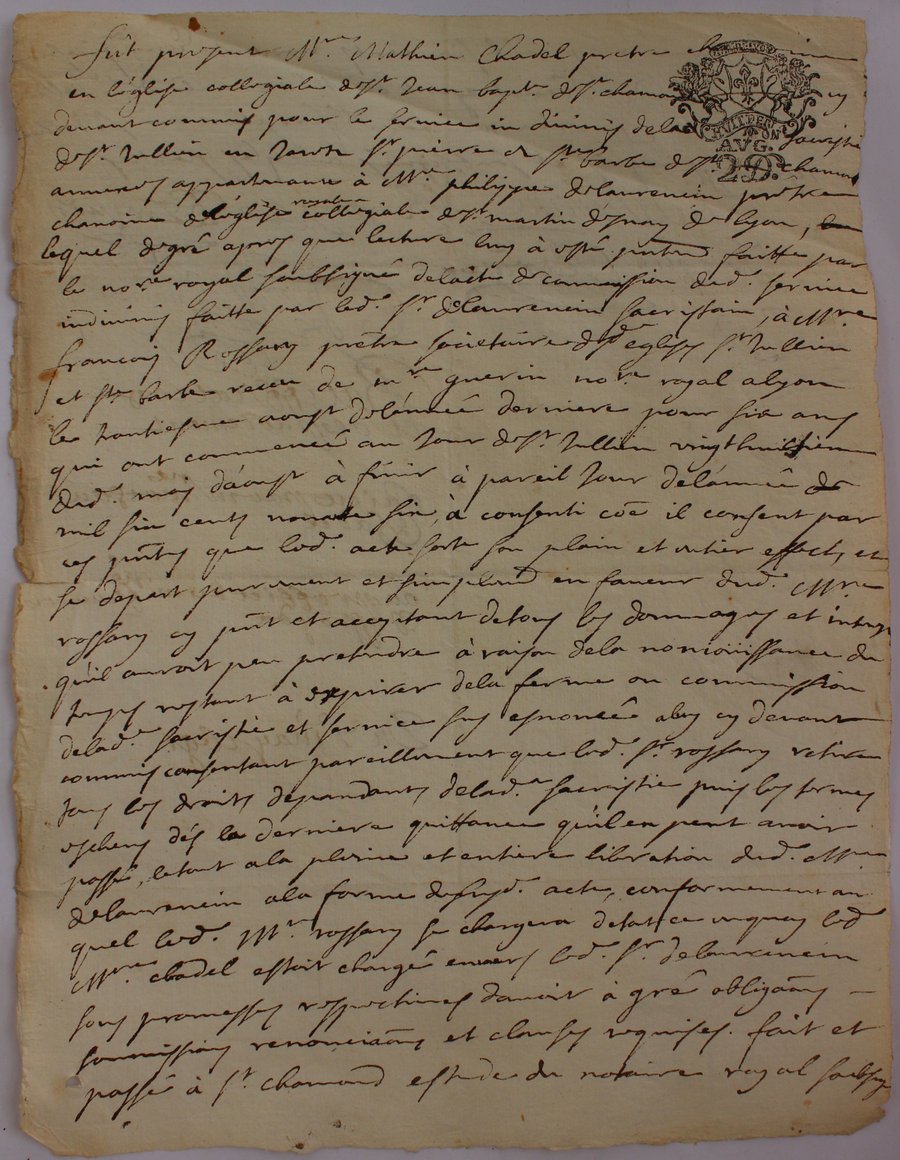 fut present Mre. Mathieu Chadel pretre
en l'eglise collegiale de St. Jean bapte. de St. chamond cy
HUIT DEN
AUG. ON
2D.
devant commis pour le service in divinis de la Sacristie
de St. Jullien en Jarets St. pierre et Ste barbe de St. chamond
annexes appartenant à Mre. philippe delaurencin pretre
chanoine de l'église royalle collegiale de St. martin d'esnay de lyon,
lequel de gré apres que lecture luy à esté faitte par
le nore. royal soubsigné de l'acte de commission dud. service
indivinis faitte par led. Sr. delaurencin sacristain, à Mre
françois Rossary pretre societaire desd. eglises St. Jullien
et Ste barbe receu de Mre guerin nore. royal a lyon
le trantiesme aoust de l'année derniere pour six ans
qui ont commencé au Jour de St. Jullien vingthuictiem
dud. moys d'aoust à finir à pareil Jour de l'année
mil six cents nonante six, à consenti cõe il consent par
ces pntes que led. acte sorte son plain et entier effect, et
se depart purement et simplemt en faveur dud. Mre
rossary cy pnt et acceptant de tous les dommages et interests
qu'il auroit peu pretendre à raison de la nonjouissance du
temps restant à expirer de la ferme ou commission
de lad. sacristie et service sus enoncée a luy cy devant
commis consentant pareillement que led. Sr. rossary retire
tous les droits dependants de lad. sacristie puis les termes
escheus dés la derniere quittance qu'il en peut avoir
passé, le tout a la pleine et entiere liberation dud. Mre
delaurencin a la forme du susd. acte, conformement au
quel led. Mre rossary se chargera de tout ce en quoy led
Mre. chadel estoit chargé envers led. Sr. delaurencin
sous promesses respectives d'avoir à gré obligãons
soumissions renonciãons et clauses requises. fait et
passé à St. chamond estude du notaire royal soubsig